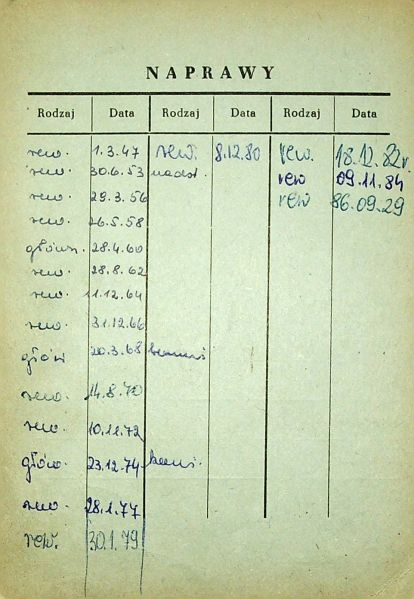 NAPRAWY
Rodzaj Data Rodzaj Data Rodzaj Data
rew. 1.3.47 rew. 8.12.80 rew. 18.12.82r.
rew. 30.6.53 nadst. rew 09.11.84
rew. 29.3.56 rew 86.09.29
rew. 26.5.58
główn. 28.4.60
rew. 28.8.62
rew. 11.12.64
rew. 31.12.66
główn 20.3.68
rew. 14.8.70
rew. 10.11.72
główn. 23.12.74
rew. 28.1.77
rew. 30.1.79